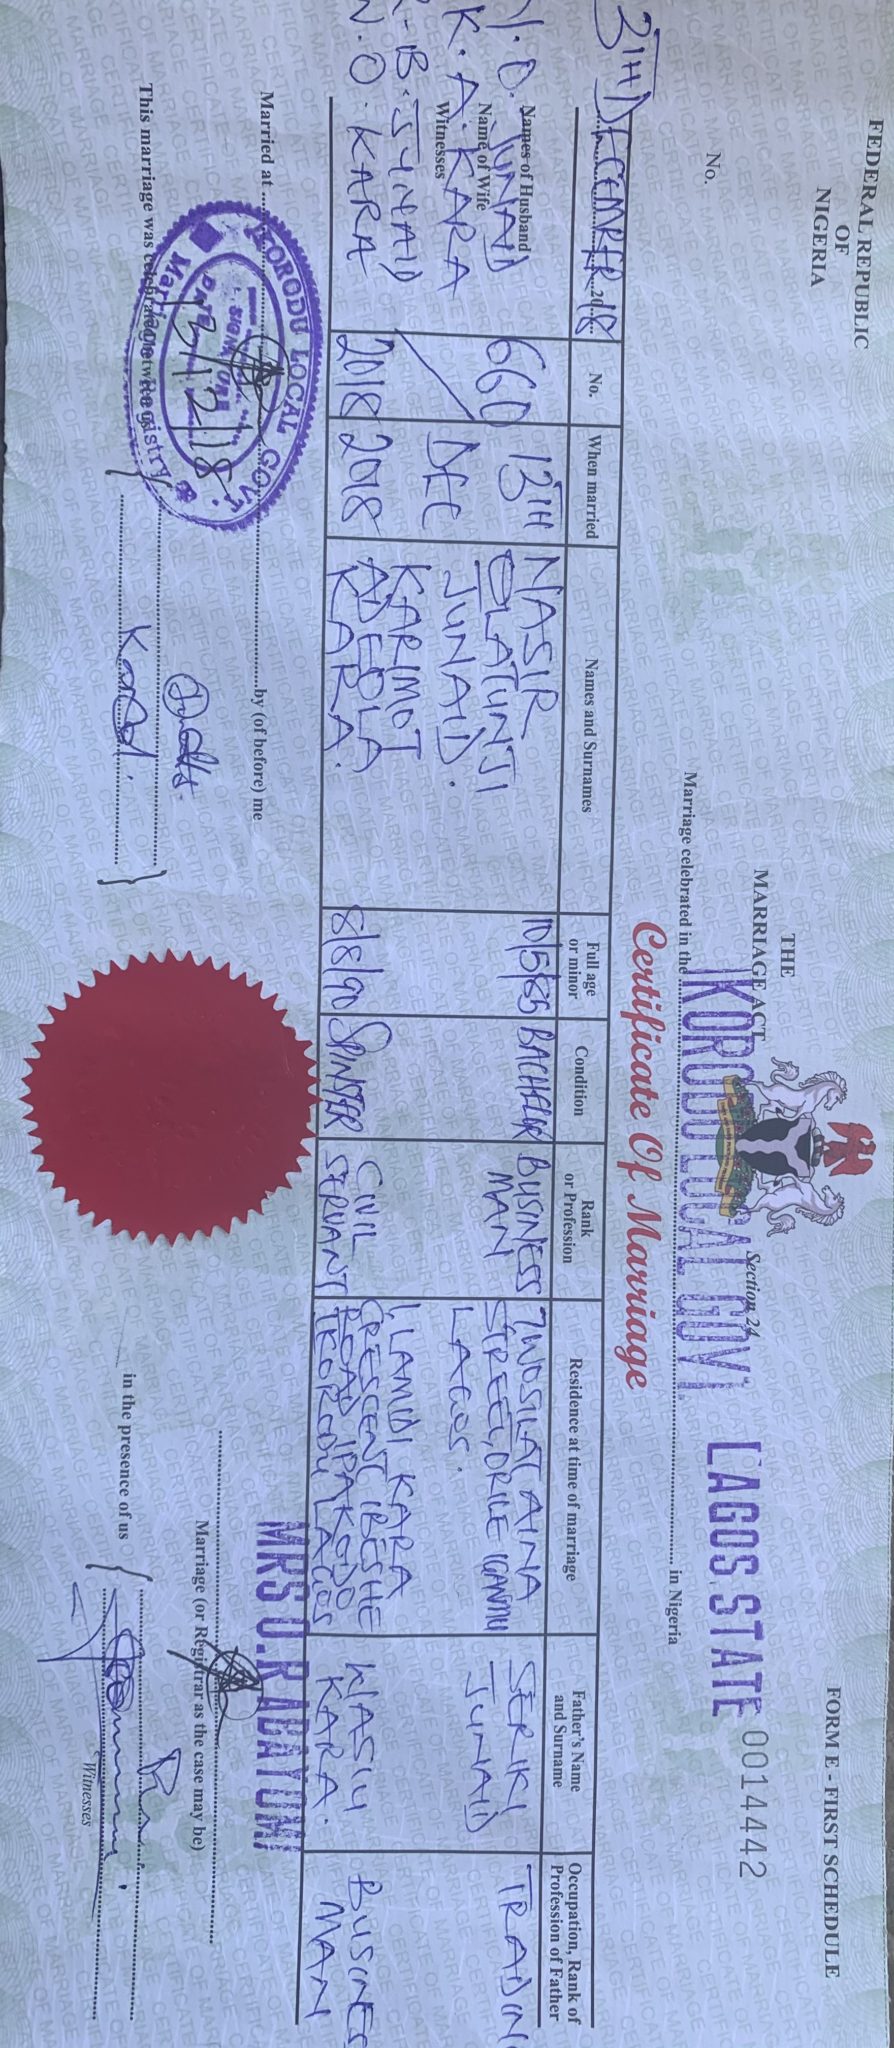 FEDERAL REPUBLIC
OF
NIGERIA
THE
MARRIAGE ACT
Section 24
FORM E - FIRST SCHEDULE
LAGOS STATE 0014442
No.
Marriage celebrated in the IKORODU LOCAL GOVT. in Nigeria
Certificate Of Marriage
3TH DECEMBER 20 18
No.
When married
Names and Surnames
Full age
or minor
Condition
Rank
or Profession
Residence at time of marriage
Father's Name
and Surname
Occupation, Rank of
Profession of Father
Names of Husband
Name of Wife
Witnesses
JUNAID
K. A. KARA
B. JUNAID
O. KARA
660
2018
13TH
DEC
2018
NASIR
OLATUNJI
JUNAID.
10/5/85
BACHELOR
BUSINESS
MAN
7 WOSILAT AINA
STREET, ORILE IGANMU
LAGOS.
SERIKI
JUNAID
TRADIN
KARIMOT
ADEOLA
KARA.
8/8/90
SPINSTER
CIVIL
SERVANT
1, LAMIDI KARA
CRESCENT IBESHE
ROAD IPAKODO
IKORODU LAGOS
WASIU
KARA.
BUSINES
MAN
Married at
by (of before) me
IKORODU LOCAL GOVT.
SIGNATURE
DATE
13/12/18
Marriage Registry
MRS O.R ADAYOMI
Marriage (or Registrar as the case may be)
This marriage was celebrated between us
Kara.
in the presence of us
Witnesses